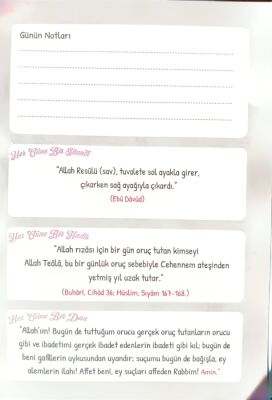 Günün Notları
Her Güne Bir Sünnet
"Allah Resûlü (sav), tuvalete sol ayakla girer,
çıkarken sağ ayağıyla çıkardı."
(Ebû Dâvûd)
Her Güne Bir Hadis
"Allah rızâsı için bir gün oruç tutan kimseyi
Allah Teâlâ, bu bir günlük oruç sebebiyle Cehennem ateşinden
yetmiş yıl uzak tutar."
(Buhârî, Cihâd 36; Müslim, Siyâm 167-168.)
Her Güne Bir Dua
"Allah'ım! Bugün de tuttuğum orucu gerçek oruç tutanların orucu
gibi ve ibadetimi gerçek ibadet edenlerin ibadeti gibi kıl; bugün de
beni gafillerin uykusundan uyandır; suçumu bugün de bağışla, ey
alemlerin ilahı! Affet beni, ey suçları affeden Rabbim! Amin."